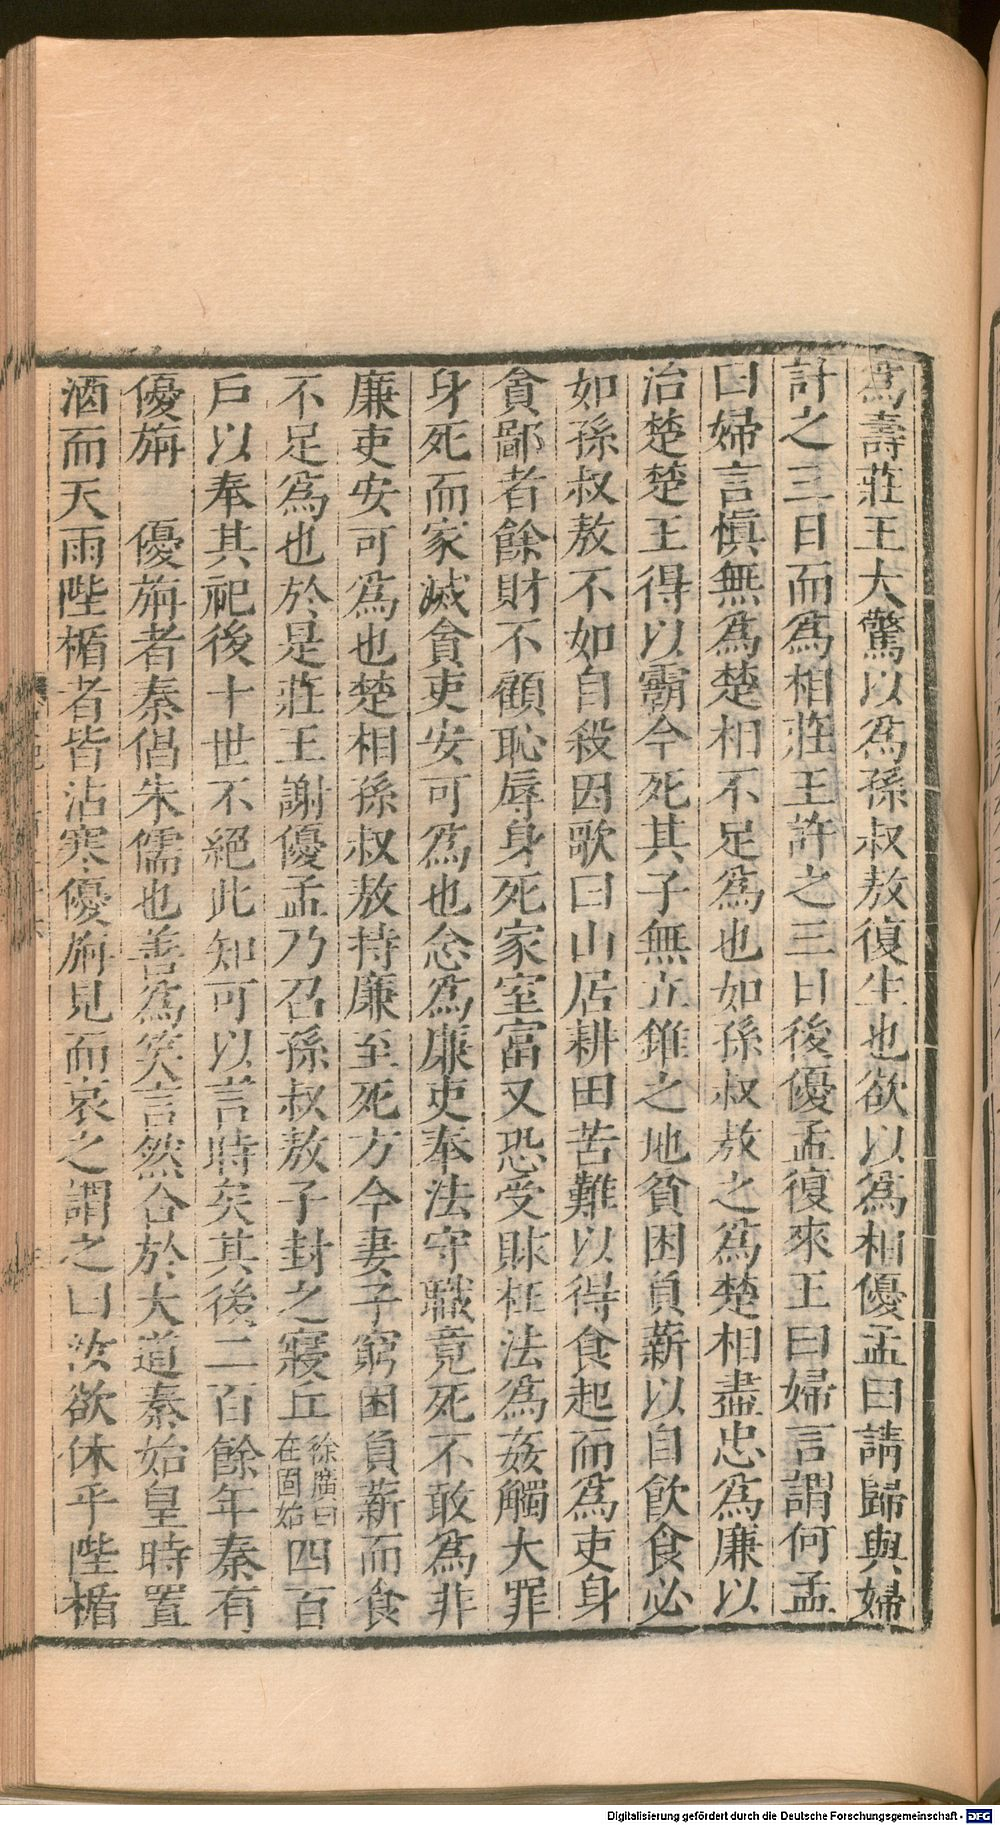 為壽莊王大驚以為孫叔敖復生也欲以為相優孟曰請歸與婦
計之三日而為相莊王許之三日後優孟復來王曰婦言謂何孟
曰婦言慎無為楚相不足為也如孫叔敖之為楚相盡忠為廉以
治楚楚王得以霸今死其子無立錐之地貧困負薪以自飲食必
如孫叔敖不如自殺因歌曰山居耕田苦難以得食起而為吏身
貪鄙者餘財不顧恥辱身死家室富又恐受賕枉法為姦觸大罪
身死而家滅貪吏安可為也念為廉吏奉法守職竟死不敢為非
廉吏安可為也楚相孫叔敖持廉至死方今妻子窮困負薪而食
不足為也於是莊王謝優孟乃召孫叔敖子封之寢丘徐廣曰在固始四百
戶以奉其祀後十世不絕此知可以言時矣其後二百餘年秦有
優旃　優旃者秦倡朱儒也善為笑言然合於大道秦始皇時置
酒而天雨陛楯者皆沾寒優旃見而哀之謂之曰汝欲休乎陛楯
Digitalisierung gefördert durch die Deutsche Forschungsgemeinschaft - DFG